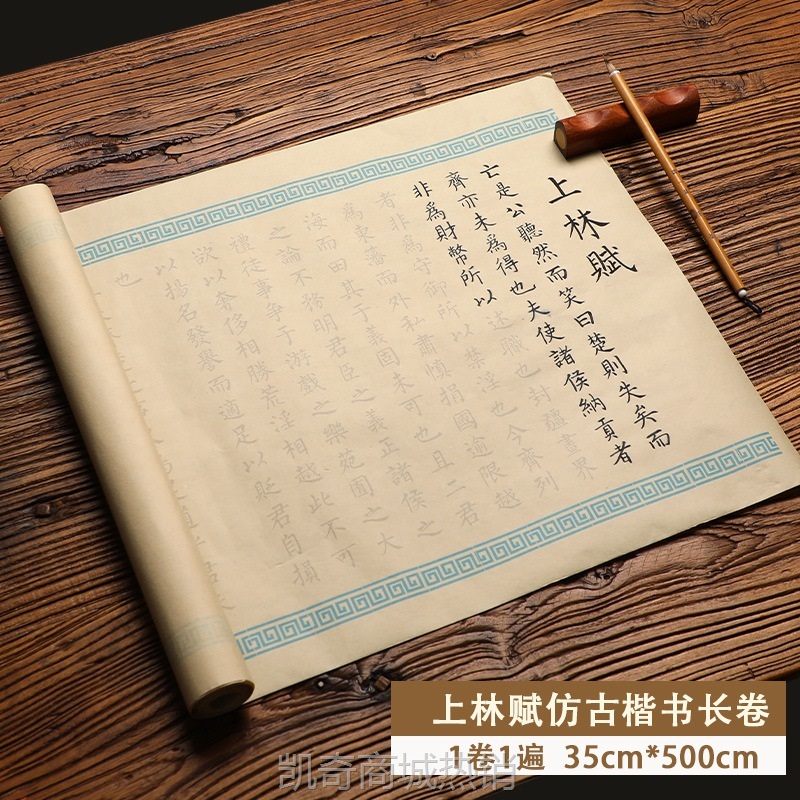 上林賦
亡是公聽然而笑曰楚則失矣而
齊亦未為得也夫使諸侯納貢者
非為財幣所以述職也封疆畫界
者非為守御所以禁淫也今齊列
為東藩而外私肅慎捐國逾限越
海而田其于義固未可也且二君
之論不務明君臣之義正諸侯之
禮徒事争于游戲之樂苑囿之大
欲以奢侈相勝荒淫相越此不可
以揚名發譽而適足以貶君自損
也
上林赋仿古楷书长卷
1卷1遍 35cm*500cm
凯奇商城热销